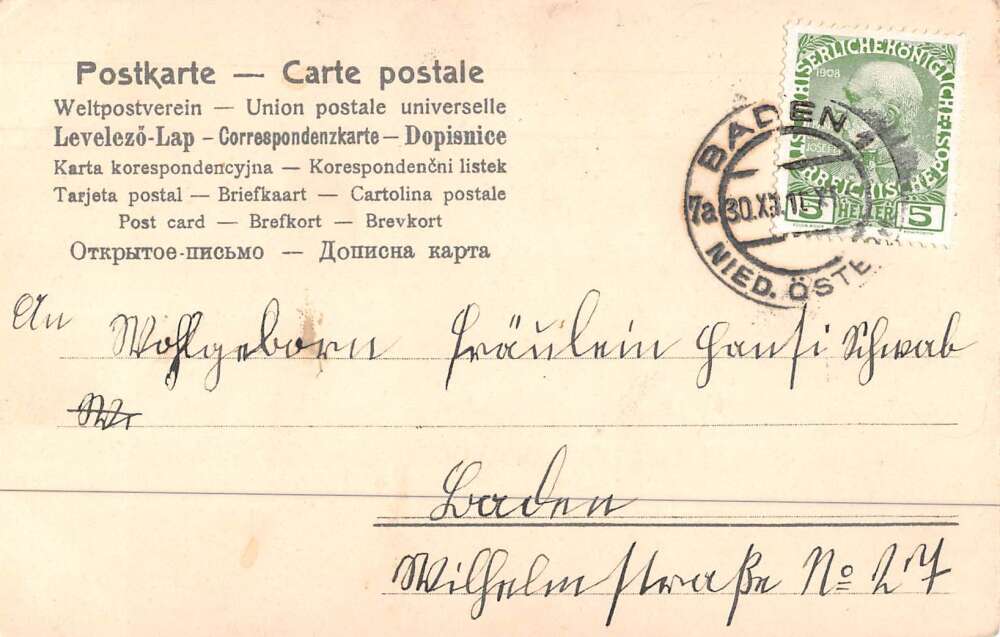 Postkarte — Carte postale
Weltpostverein — Union postale universelle
Levelező-Lap – Correspondenzkarte – Dopisnice
Karta korespondencyjna — Korespondenčni listek
Tarjeta postal — Briefkaart — Cartolina postale
Post card — Brefkort — Brevkort
Открытое-письмо — Дописна карта
1908
5 HELLER 5
BADEN 1
7a 30.XII.11
NIED. ÖSTE
An Wohlgeborn Fräulein Hansi Schwab
Baden
Wilhelmstraße No 27